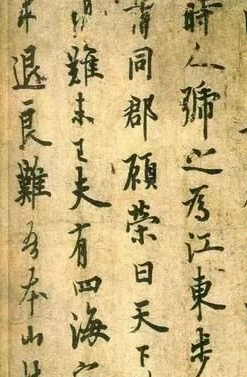 時人號之為江東步
同郡顧榮曰天下
難未已夫有四海
退良難吾本山